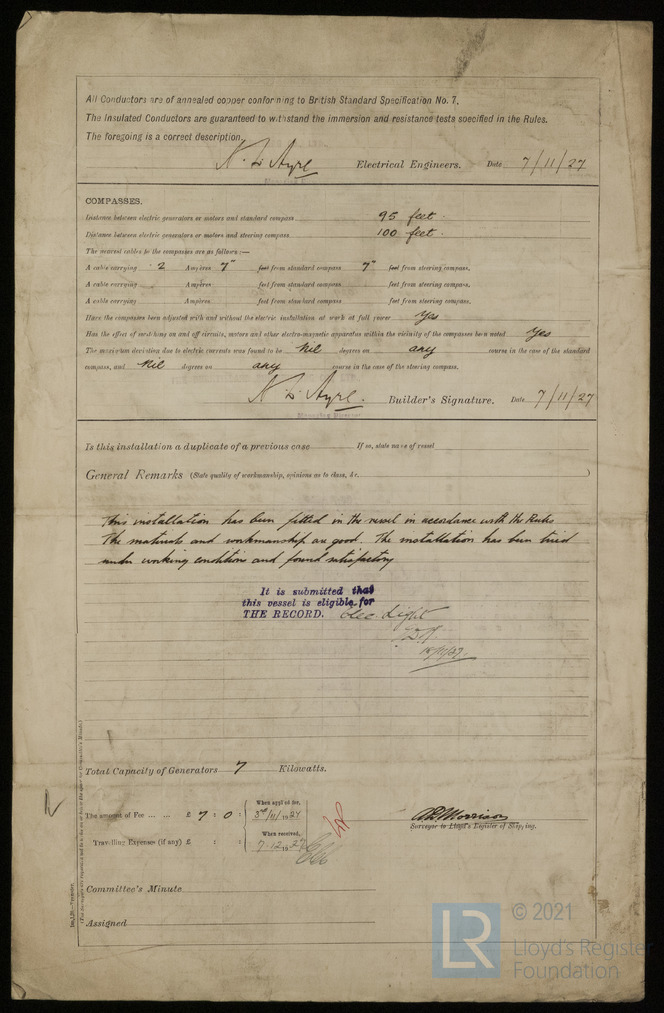 All Conductors are of annealed copper conforming to British Standard Specification No. 7.
The Insulated Conductors are guaranteed to withstand the immersion and resistance tests specified in the Rules.
The foregoing is a correct description.
Ayre Electrical Engineers. Date 7/11/27
COMPASSES.
Distance between electric generators or motors and standard compass 95 feet.
Distance between electric generators or motors and steering compass 100 feet.
The nearest cables to the compasses are as follows:—
A cable carrying 2 Ampères 7" feet from standard compass 7" feet from steering compass.
A cable carrying Ampères feet from standard compass feet from steering compass.
A cable carrying Ampères feet from standard compass feet from steering compass.
Have the compasses been adjusted with and without the electric installation at work at full power Yes
Has the effect of switching on and off circuits, motors and other electro-magnetic apparatus within the vicinity of the compasses been noted Yes
The maximum deviation due to electric currents was found to be Nil degrees on any course in the case of the standard
compass, and Nil degrees on any course in the case of the steering compass.
Ayre. Builder's Signature. Date 7/11/27
Is this installation a duplicate of a previous case If so, state name of vessel
General Remarks (State quality of workmanship, opinions as to class, &c. )
This installation has been fitted in the vessel in accordance with the Rules
The materials and workmanship are good. The installation has been tried
under working conditions and found satisfactory
It is submitted that
this vessel is eligible for
THE RECORD. Elec Light
Total Capacity of Generators 7 Kilowatts.
When applied for,
The amount of Fee ... ... £ 7 : 0 :
When received,
Travelling Expenses (if any) £ : :
Morrison
Surveyor to Lloyd's Register of Shipping.
Committee's Minute
Assigned
LR
© 2021
Lloyd's Register
Foundation